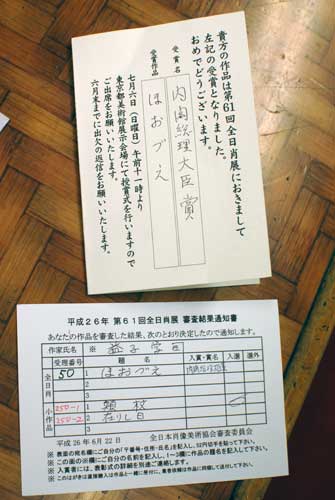 貴方の作品は第61回全日肖展におきまして
左記の受賞となりました。
おめでとうございます。
受賞名
内閣総理大臣賞
受賞作品
ほおづえ
七月六日(日曜日)午前十一時より
東京都美術館展示会場にて授賞式を行いますので
ご出席をお願いいたします。
六月末までに出欠の返信をお願いいたします。
平成26年 第61回全日肖展 審査結果通知書
あなたの作品を審査した結果、次のとおり決定したので通知します。
作家氏名 ※
受理番号 題名 入賞・賞名 入選 選外
全日肖 50 1 ほおづえ 内閣総理大臣賞
2
3
小作品 250-1 1 頬杖
250-2 2 在りし日
平成26年6月22日 全日本肖像美術協会審査委員会